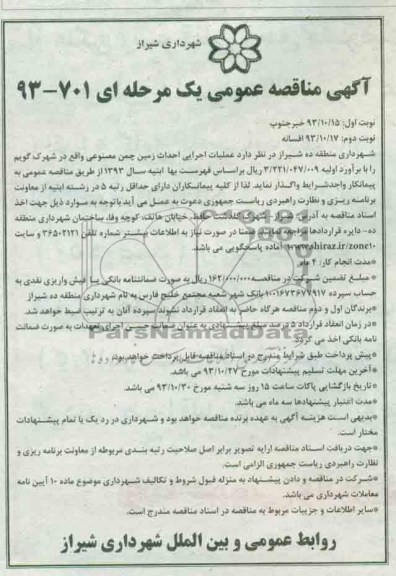 شهرداری شیراز
آگهی مناقصه عمومی یک مرحله ای ۷۰۱-۹۳
نوبت اول: ۹۳/۱۰/۱۵ خبرجنوب
نوبت دوم: ۹۳/۱۰/۱۷ افسانه
شهرداری منطقه ده شیراز در نظر دارد عملیات اجرایی احداث زمین چمن مصنوعی واقع در شهرک گویم
را با برآورد اولیه ۳/۲۲۱/۰۴۷/۰۰۹ ریال براساس فهرست بها ابنیه سال ۱۳۹۳ از طریق مناقصه عمومی به
پیمانکار واجدشرایط واگذار نماید. لذا از کلیه پیمانکاران دارای حداقل رتبه ۵ در رشته ابنیه از معاونت
برنامه ریزی و نظارت راهبردی ریاست جمهوری دعوت به عمل می آید باتوجه به موارد ذیل جهت اخذ
اسناد مناقصه به آدرس: شیراز- شهرک گلدشت حافظ، خیابان هاتف، کوچه وفا، ساختمان شهرداری منطقه
ده- دایره قراردادها مراجعه نمایند. ضمنا در صورت نیاز به اطلاعات بیشتر شماره تلفن ۳۶۵۰۲۱۲۱ و سایت
www.shiraz.ir/zone10 آماده پاسخگویی می باشد.
*مدت انجام کار: ۴ ماه
* مبلغ تضمین شرکت در مناقصه ۱۶۲/۰۰۰/۰۰۰ ریال به صورت ضمانتنامه بانکی یا فیش واریزی نقدی به
حساب سپرده ۱۰۰۱۶۷۳۶۷۷۹۱۷ بانک شهر شعبه مجتمع خلیج فارس به نام شهرداری منطقه ده شیراز
*برندگان اول و دوم مناقصه هرگاه حاضر به انعقاد قرارداد نشوند سپرده آنان به ترتیب ضبط خواهد شد.
*در زمان انعقاد قرارداد ۵ درصد مبلغ پیشنهادی به عنوان ضمانت حسن اجرای تعهدات به صورت ضمانت
نامه بانکی اخذ می گردد.
*پیش پرداخت طبق شرایط مندرج در اسناد مناقصه قابل پرداخت خواهد بود.
ParsNamadData
*آخرین مهلت تسلیم پیشنهادات مورخ ۹۳/۱۰/۲۷ می باشد.
*تاریخ بازگشایی پاکات ساعت ۱۵ روز سه شنبه مورخ ۹۳/۱۰/۳۰ می باشد.
*مدت اعتبار پیشنهادها سه ماه می باشد.
*بدیهی است هزینه آگهی به عهده برنده مناقصه خواهد بود و شهرداری در رد یک یا تمام پیشنهادات
مختار است.
*جهت دریافت اسناد مناقصه ارایه تصویر برابر اصل صلاحیت رتبه بندی مربوطه از معاونت برنامه ریزی و
نظارت راهبردی ریاست جمهوری الزامی است.
*شرکت در مناقصه و دادن پیشنهاد به منزله قبول شروط و تکالیف شهرداری موضوع ماده ۱۰ آیین نامه
معاملات شهرداری می باشد.
*سایر اطلاعات و جزییات مربوط به مناقصه در اسناد مناقصه مندرج است.
روابط عمومی و بین الملل شهرداری شیراز